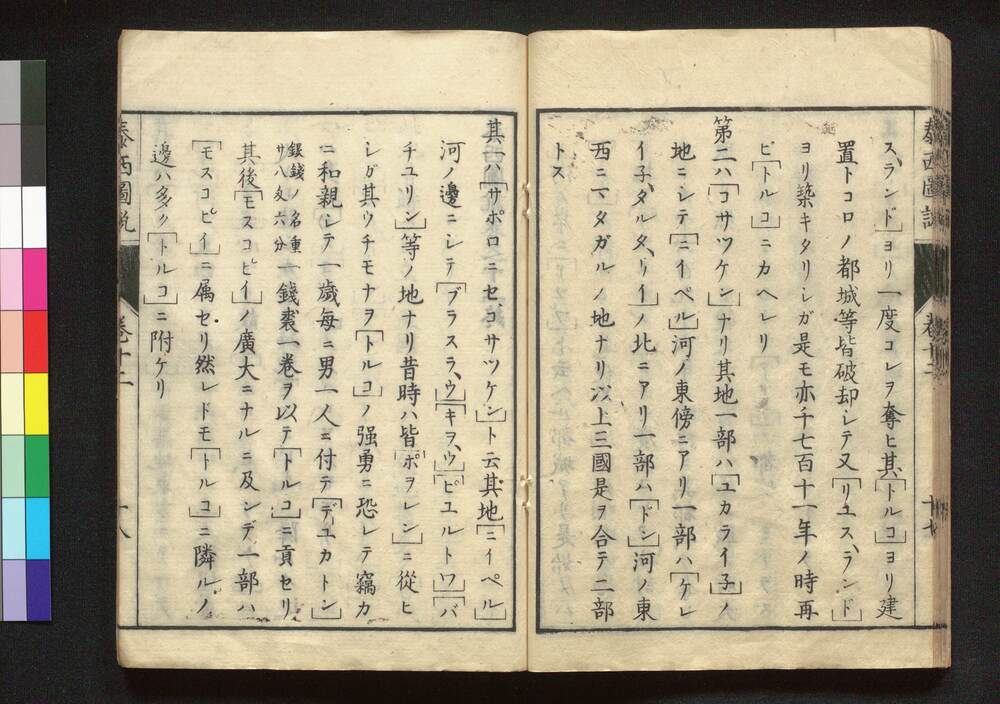 泰西圖説
卷十二
十七
スヽランド」ヨリ一度コレヲ奪ヒ其「トルコ」ヨリ建
置トコロノ都城等皆破却シテ又「リユスヽランド」
ヨリ築キタリシガ是モ亦千七百十一年ノ時再
ビ「トルコ」ニカヘレリ
第二ハ「コサツケン」ナリ其地一部ハ「ユカライ子」ノ
地ニシテ「ニイペル」河ノ東傍ニアリ一部ハ「ケレ
イ子、タルタ、リイ」ノ北ニアリ一部ハ「ドン」河ノ東
西ニマタガルノ地ナリ以上三國是ヲ合テ二部
トス
其一ハ「サポロニセ、コサツケン」ト云其地「ニイペル」
河ノ邊ニシテ「ブラスラ、ウ」「キヲ、ウ」「ピユルトワ」「バ
チユリン」等ノ地ナリ昔時ハ皆「ポヲレン」ニ從ヒ
シガ其ウチモナヲ「トルコ」ノ强勇ニ恐レテ竊カ
ニ和親シテ一歳毎ニ男一人ニ付テ「デユカトン」
銀錢ノ名重サ八匁六分
一錢裘一巻ヲ以テ「トルコ」ニ貢セリ
其後「モスコビイ」ノ廣大ニナルニ及ンデ一部ハ
「モスコビイ」ニ属セリ然レドモ「トルコ」ニ隣ルノ
邊ハ多ク「トルコ」ニ附ケリ
泰西圖説
卷十二
十八